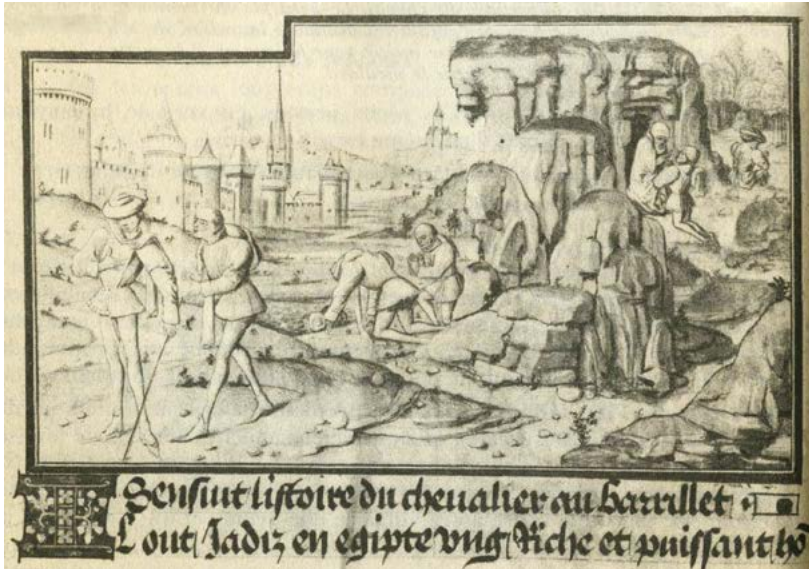 Sensiut listoire du cheualier au barrillet
IL out Jadiz en egipte vng Riche et puissant hõ